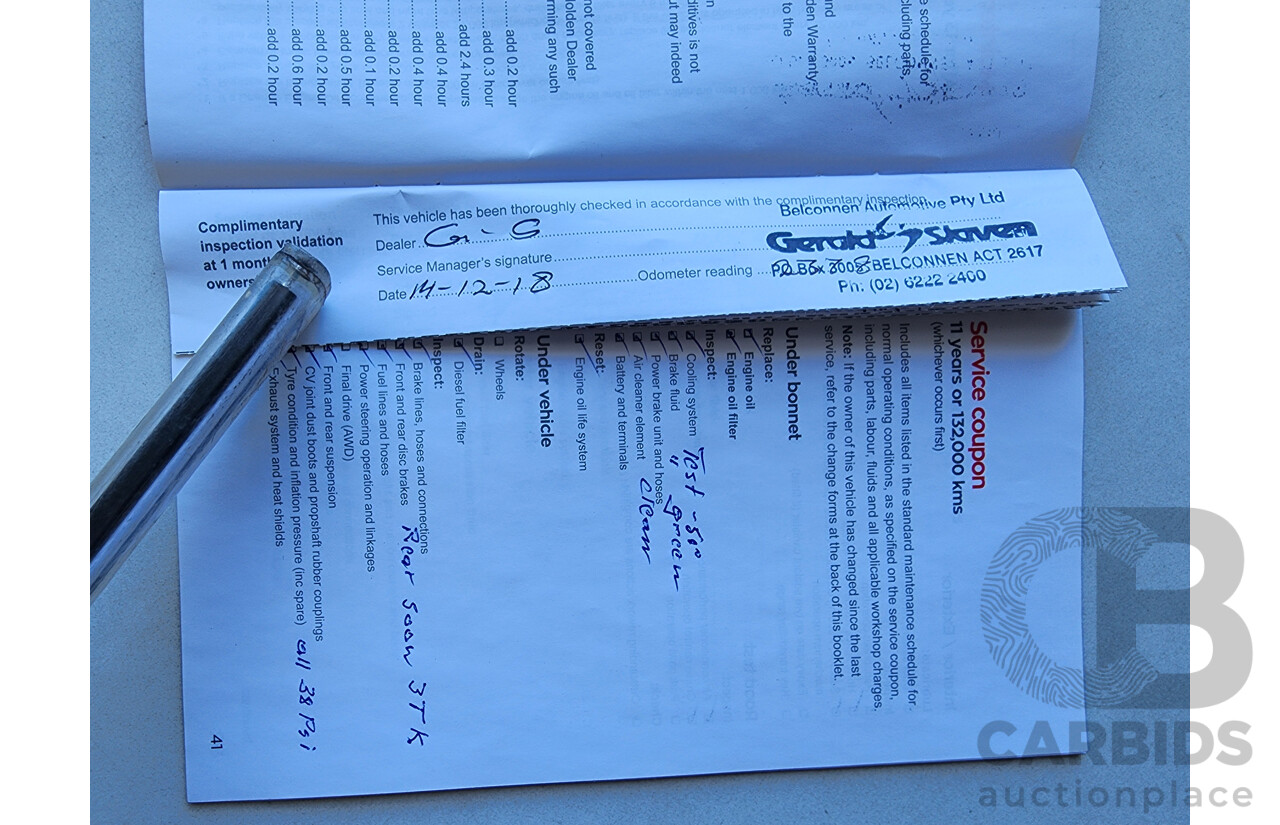 schedule for
cluding parts,
and
den Warranty
to the
n
ditives is not
ut may indeed
not covered
Holden Dealer
rming any such
add 0.2 hour
add 0.3 hour
add 2.4 hours
add 0.4 hour
add 0.4 hour
add 0.2 hour
add 0.1 hour
add 0.5 hour
add 0.2 hour
add 0.6 hour
add 0.2 hour
Complimentary
inspection validation
at 1 month
owners
This vehicle has been thoroughly checked in accordance with the complimentary inspection
Dealer G.G
Service Manager's signature
Date 14-12-18 Odometer reading
Belconnen Automotive Pty Ltd
Gerald Slaven
PO Box 3008 BELCONNEN ACT 2617
Ph: (02) 6222 2400
Service coupon
11 years or 132,000 kms
(whichever occurs first)
Includes all items listed in the standard maintenance schedule for
normal operating conditions, as specified on the service coupon,
including parts, labour, fluids and all applicable workshop charges.
Note: If the owner of this vehicle has changed since the last
service, refer to the change forms at the back of this booklet.
Under bonnet
Replace:
Engine oil
Engine oil filter
Inspect:
Cooling system Test -50°
Brake fluid " green
Power brake unit and hoses
Air cleaner element clean
Battery and terminals
Reset:
Engine oil life system
Under vehicle
Rotate:
Wheels
Drain:
Diesel fuel filter
Inspect:
Brake lines, hoses and connections
Front and rear disc brakes Rear soon 3TK
Fuel lines and hoses
Power steering operation and linkages
Final drive (AWD)
Front and rear suspension
CV joint dust boots and propshaft rubber couplings
Tyre condition and inflation pressure (inc spare) all 38 Psi
Exhaust system and heat shields
41
CB
CARBIDS
auctionplace